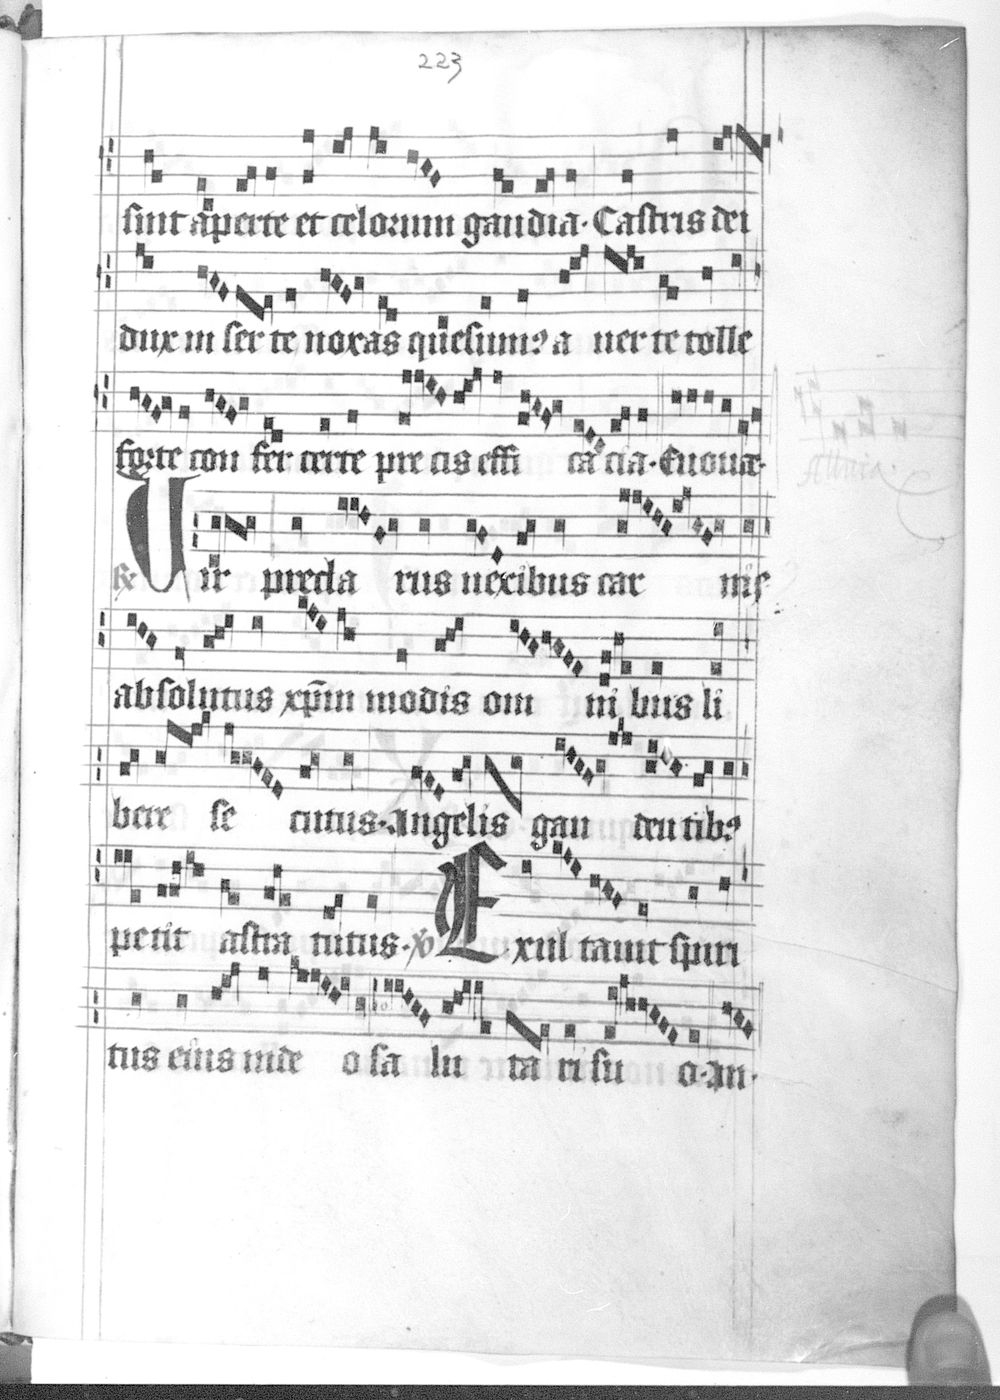 223
sint aperte et celorum gaudia. Castris dei
dux in ser te noxas quesum⁹ a uer te tolle
forte con fer certe pre cis effi ca cia. Euouae.
℟ Vir precla rus nexibus car nis
absolutus xp̄m modis om ni bus li
bere se cutus. Angelis gau den tib⁹
petit astra tutus. V̕ Exul tauit spiri
tus eius inde o sa lu ta ri su o. An.
Alleuia